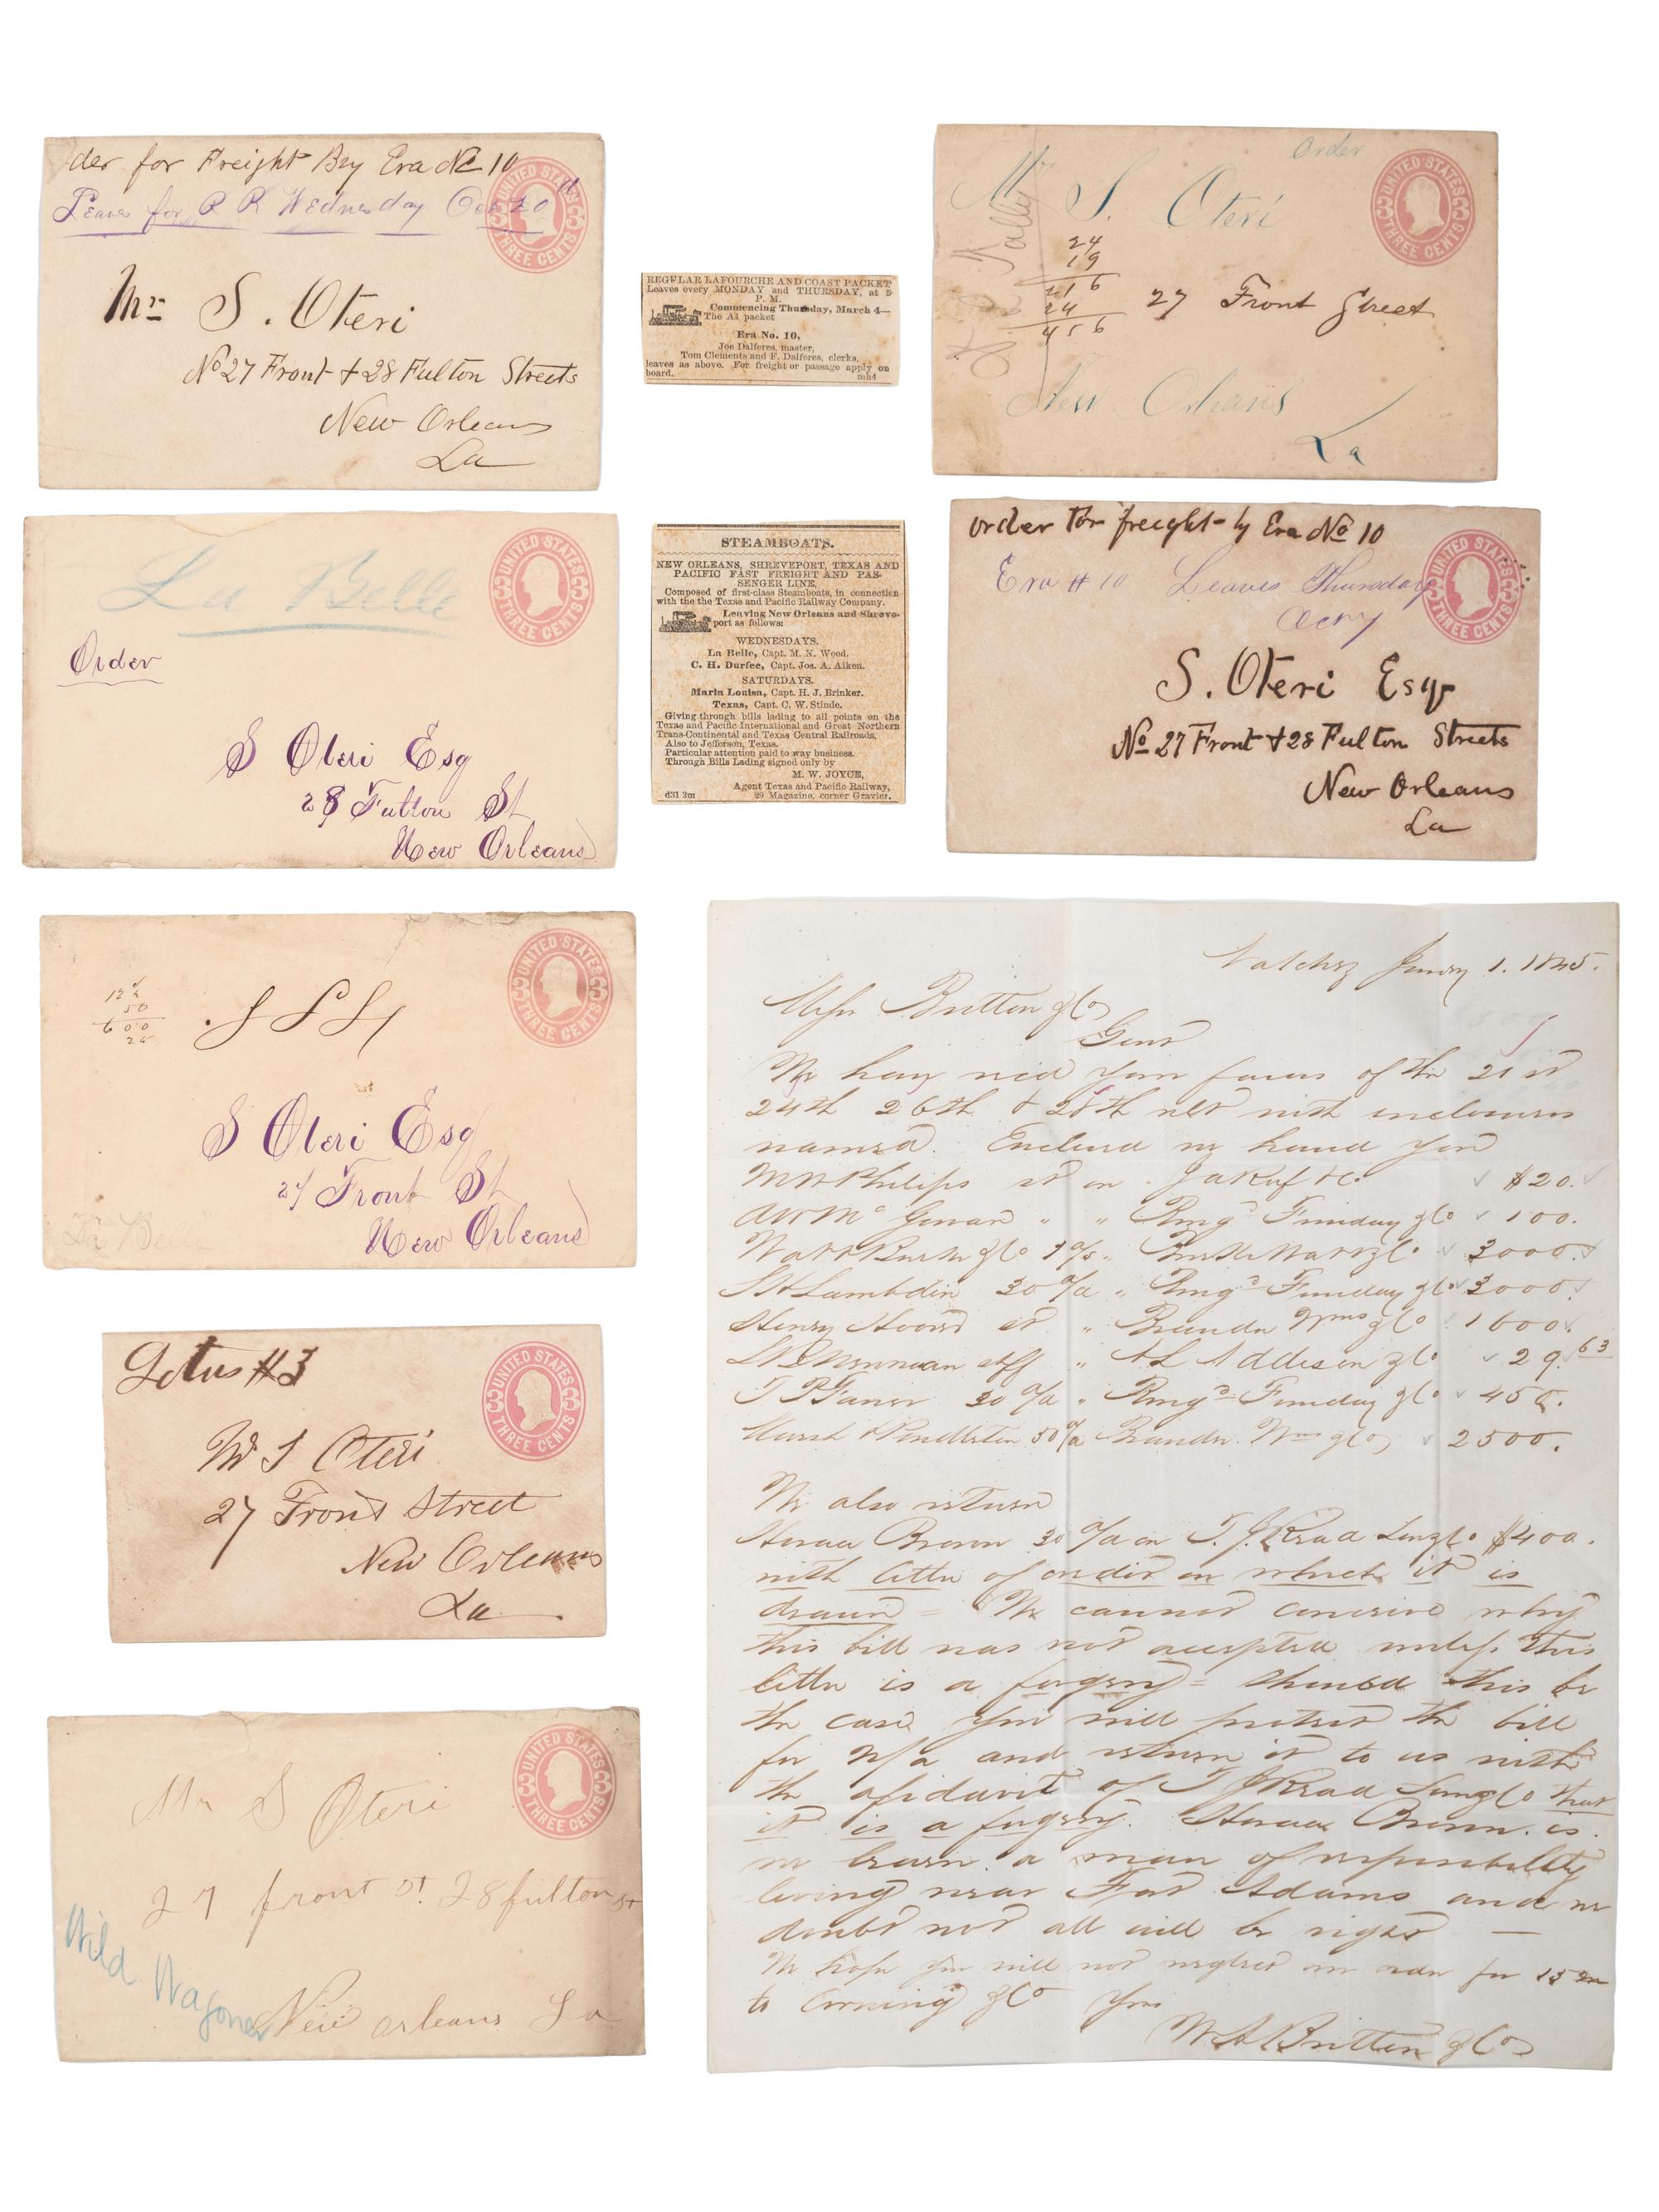 der for Freight By Era No 10
Leaves for R R Wednesday Oct 20
UNITED STATES
THREE CENTS
Mr S. Oteri
No 27 Front + 28 Fulton Streets
New Orleans
La
REGULAR LAFOURCHE AND COAST PACKET
Leaves every MONDAY and THURSDAY, at 5
P. M.
Commencing Thursday, March 4—
The A1 packet
Era No. 10,
Joe Dalferes, master,
Tom Clements and F. Dalferes, clerks,
leaves as above. For freight or passage apply on
board. mh4
Order
UNITED STATES
THREE CENTS
S. Oteri
24
19
216
24
456
27 Front Street
New Orleans
La
La Belle
UNITED STATES
THREE CENTS
Order
S Oteri Esq
28 Fulton St
New Orleans
STEAMBOATS.
NEW ORLEANS, SHREVEPORT, TEXAS AND
PACIFIC FAST FREIGHT AND PAS-
SENGER LINE,
Composed of first-class Steamboats, in connection
with the the Texas and Pacific Railway Company.
Leaving New Orleans and Shreve-
port as follows:
WEDNESDAYS.
La Belle, Capt. M. N. Wood.
C. H. Durfee, Capt. Jos. A. Aiken.
SATURDAYS.
Maria Louisa, Capt. H. J. Brinker.
Texas, Capt. C. W. Stinde.
Giving through bills lading to all points on the
Texas and Pacific International and Great Northern
Trans-Continental and Texas Central Railroads,
Also to Jefferson, Texas.
Particular attention paid to way business.
Through Bills Lading signed only by
M. W. JOYCE,
Agent Texas and Pacific Railway,
d31 3m 29 Magazine, corner Gravier.
order for freight by Era No 10
Era # 10 Leaves Thursday
UNITED STATES
THREE CENTS
S. Oteri Esqr
No 27 Front + 28 Fulton Streets
New Orleans
La
UNITED STATES
THREE CENTS
12 ½
50
600
25
S Oteri Esq
27 Front St
New Orleans
La Belle
Lotus #3
UNITED STATES
THREE CENTS
Mr S Oteri
27 Front Street
New Orleans
La
UNITED STATES
THREE CENTS
Mr S Oteri
27 front st 28 fulton st
Wild Wagoner
New orleans La
Natchez 1. 1845.
Messrs Britton & Co
Gent
We have recd your favors of the 21st
24th 26th & 28th ulto with enclosures
named. Enclosed we hand you
Philips on $20.
" " 100.
3000.
Lambdin 30 " 3000.
Henry " 1600.
" A L Addison & Co 29.63
30 " 450.
Pendleton 2500.
We also return
Horace Brown 30 on T. J. Read Son & Co $400.
with letter of order on which it is
drawn = We cannot conceive why
this bill was not accepted unless this
letter is a forgery = should this be
the case you will protest the bill
for n/a and return it to us with
the afidavit of T J Read Son & Co that
it is a forgery. Horace Brown is
we learn a man of responsibility
living near Fort Adams and we
doubt not all will be right —
We hope you will not neglect our order for 15
to Corning & Co Yours
W A Britton & Co